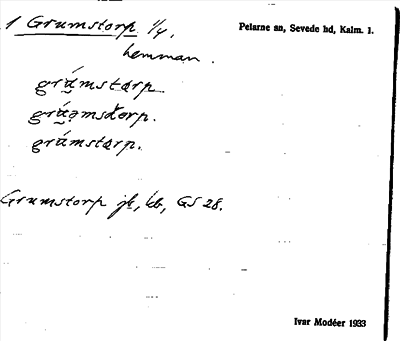 1 Grumstorp 1/4,
Pelarne sn, Sevede hd, Kalm. 1.
hemman.
grúmstarp.
grúəmsdorp.
grúmstarp.
Grumstorp jb, kb, GS 28.
Ivar Modéer 1933